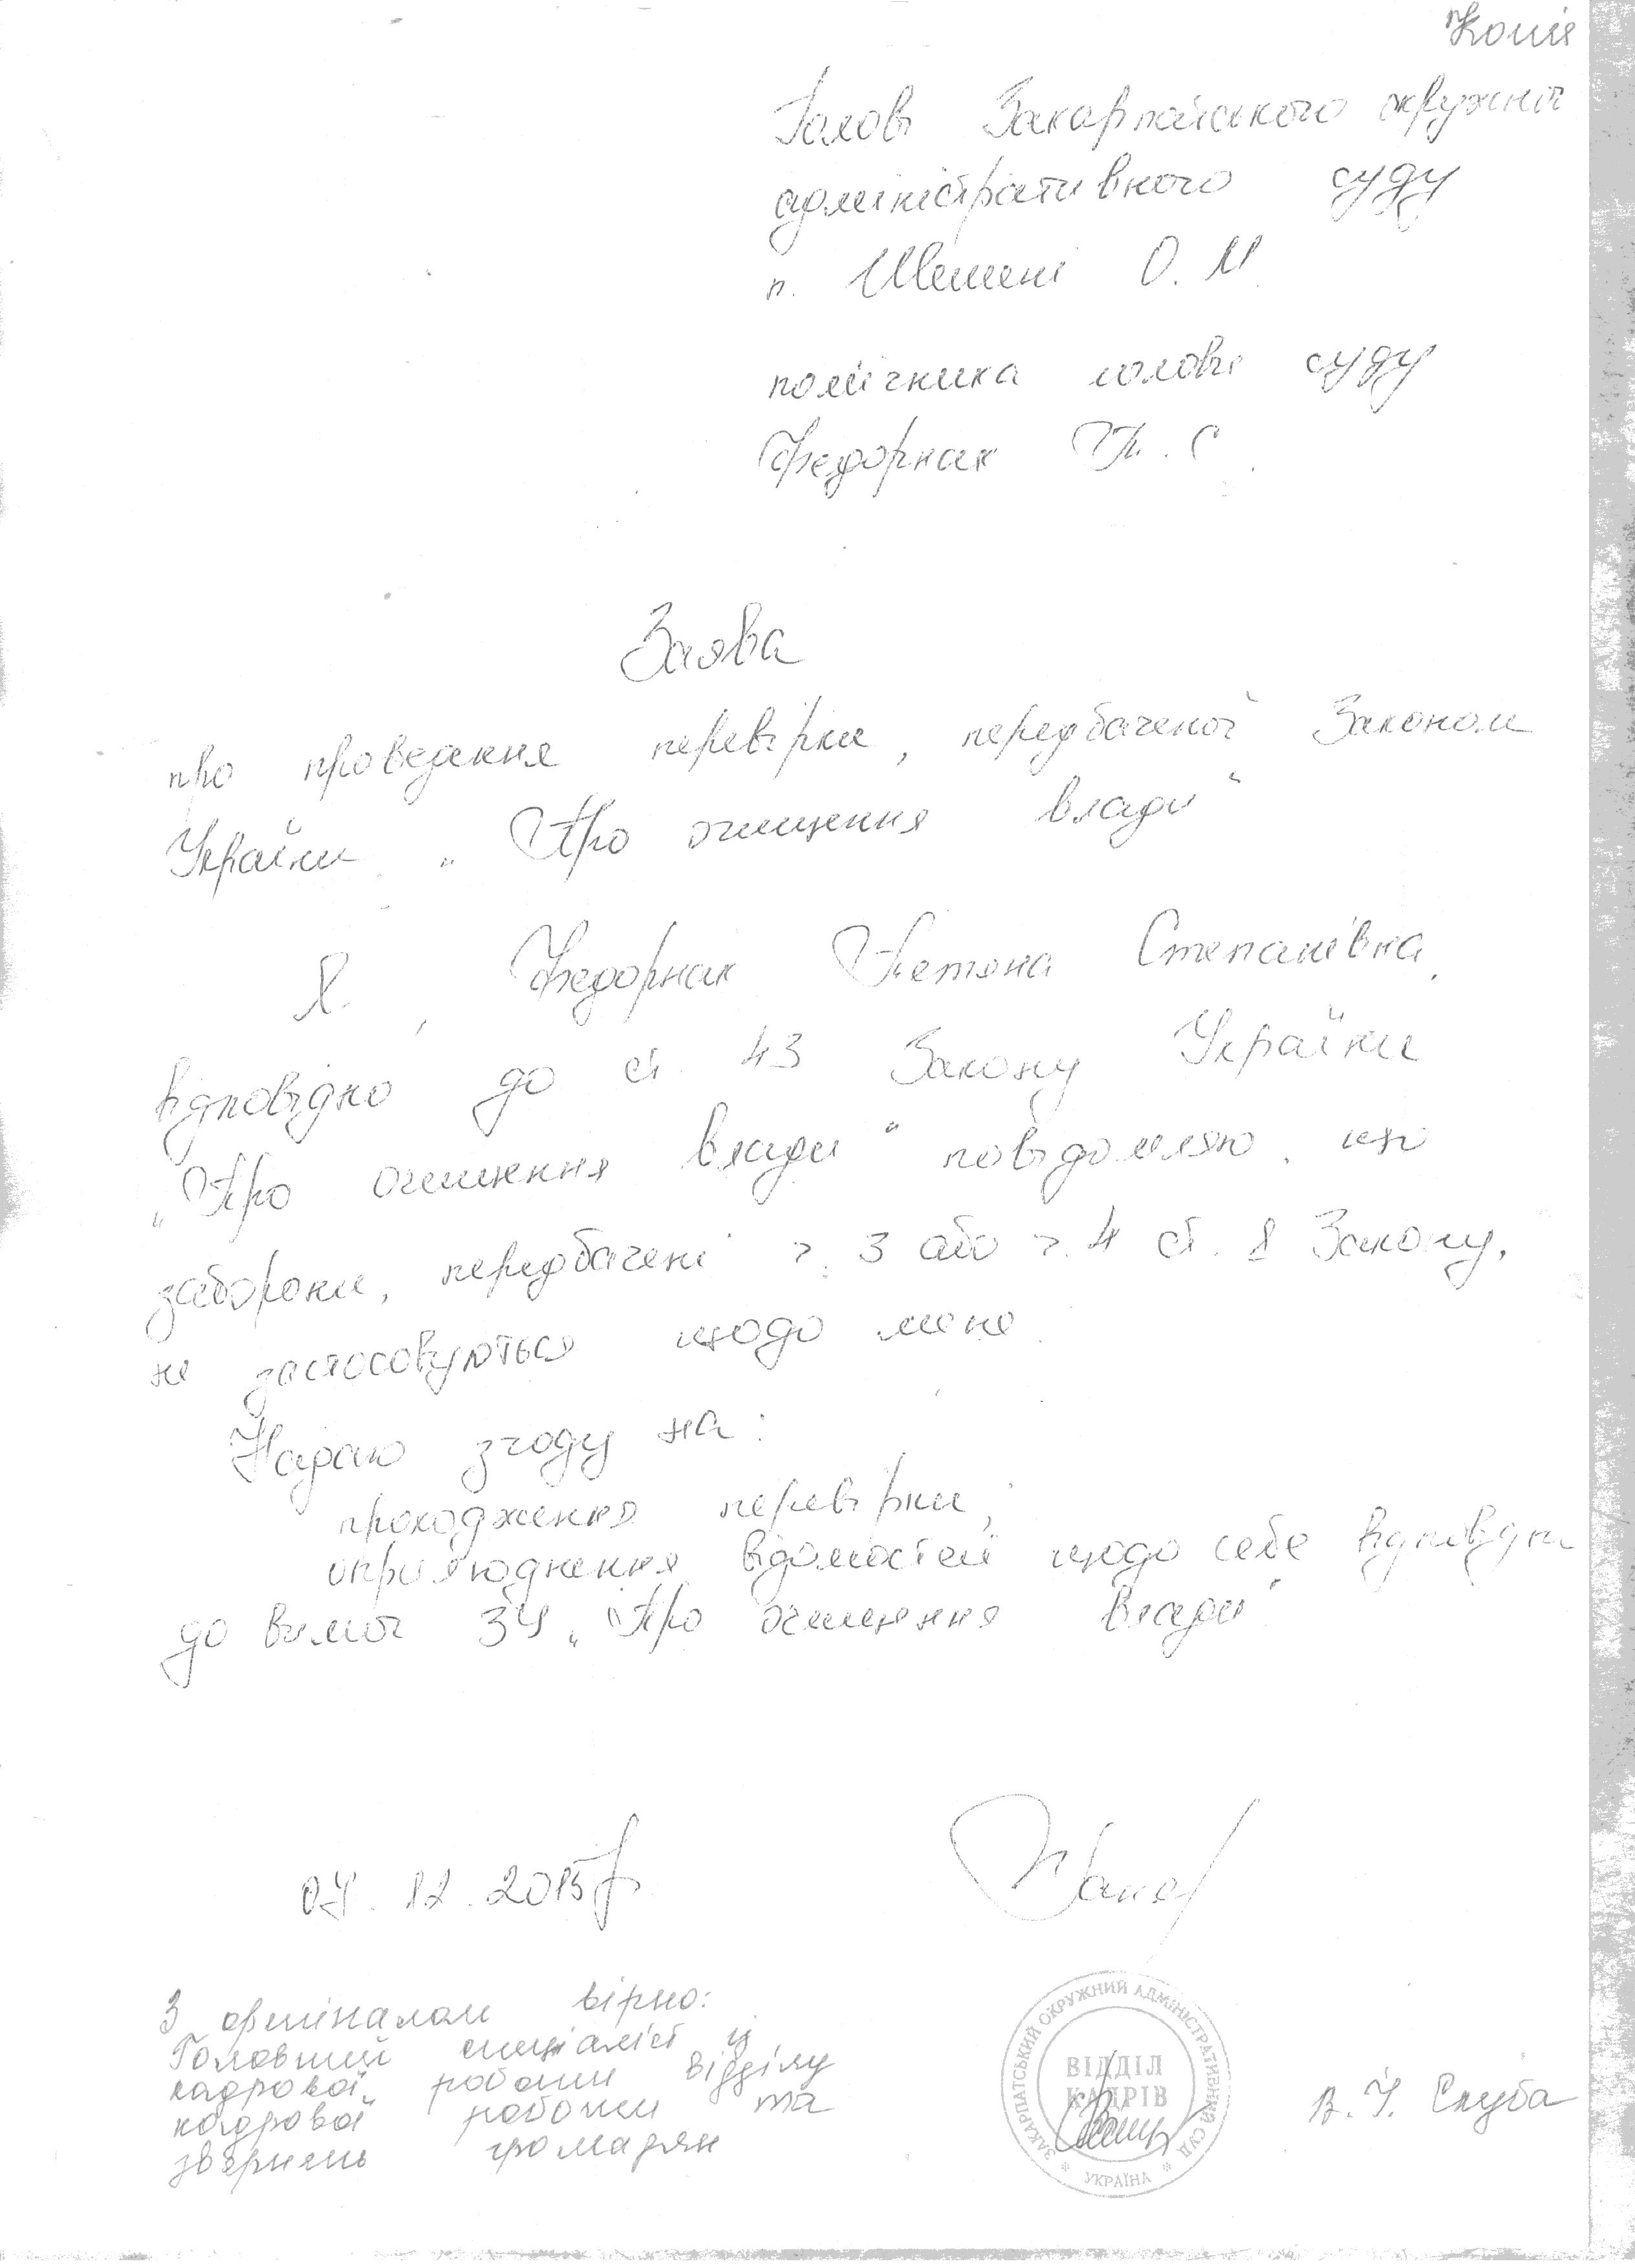 Копія
Голові Закарпатського окружного
адміністративного суду
п. Шешені О. М.
помічника голови суду
Федорчак Т. С.
Заява
про проведення перевірки, передбаченої Законом
України „Про очищення влади“
Я, Федорчак Тетяна Степанівна,
відповідно до ст. 43 Закону України
„Про очищення влади“ повідомляю, що
заборони, передбачені ч. 3 або ч. 4 ст. 1 Закону,
не застосовуються щодо мене.
Надаю згоду на:
проходження перевірки;
оприлюднення відомостей щодо себе відповідно
до вимог ЗУ „Про очищення влади“
12.2015р
З оригіналом вірно:
Головний спеціаліст із
кадрової роботи відділу
кадрової роботи та
звернень громадян
ЗАКАРПАТСЬКИЙ ОКРУЖНИЙ АДМІНІСТРАТИВНИЙ СУД
ВІДДІЛ
КАДРІВ
* УКРАЇНА *
В. І. Скуба